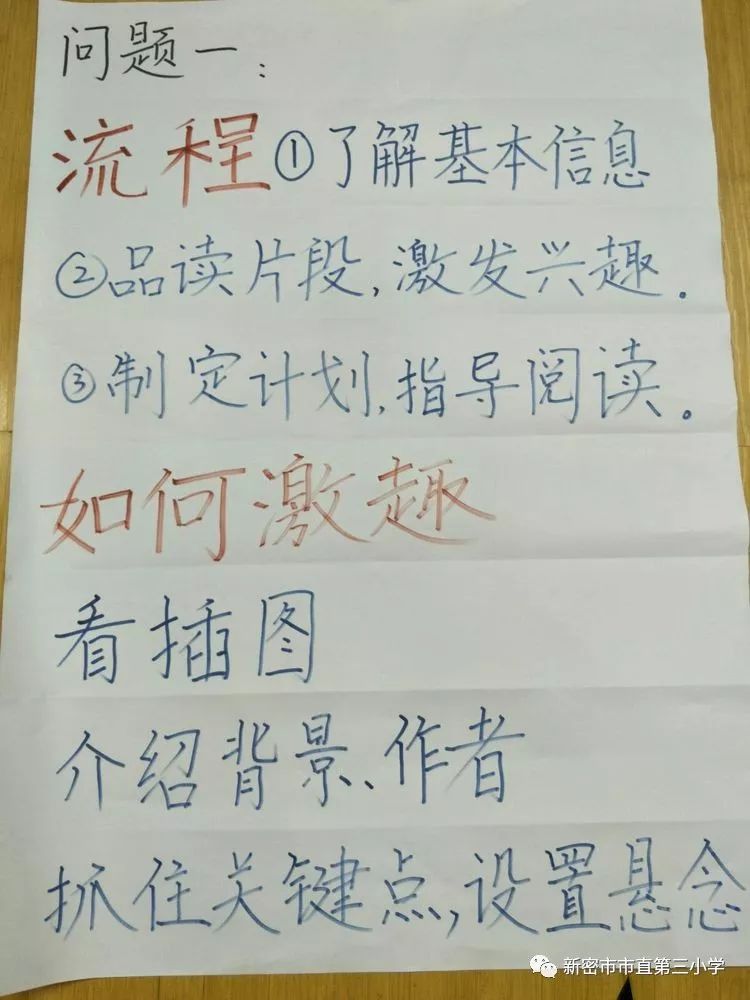 问题一：
流程①了解基本信息
②品读片段，激发兴趣.
③制定计划，指导阅读。
如何激趣
看插图
介绍背景、作者
抓住关键点，设置悬念
新密市市直第三小学